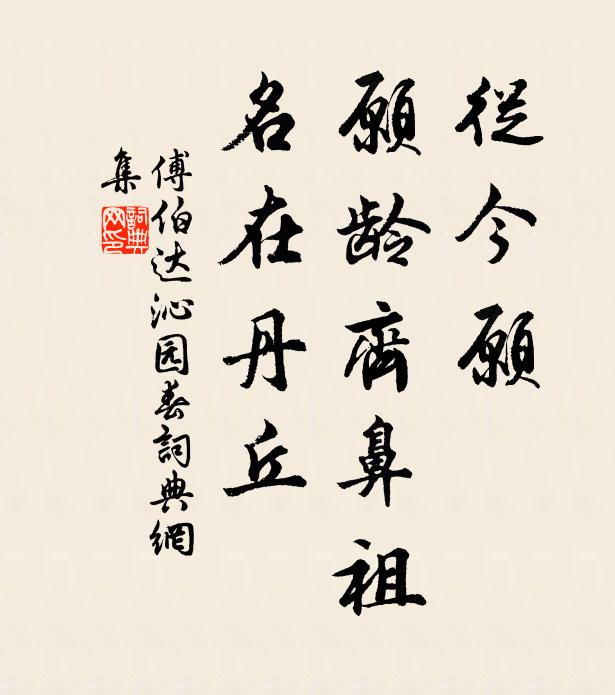 從今願
願龄齊鼻祖
名在丹丘
傅伯达沁园春詞典網
集
詞典
网印